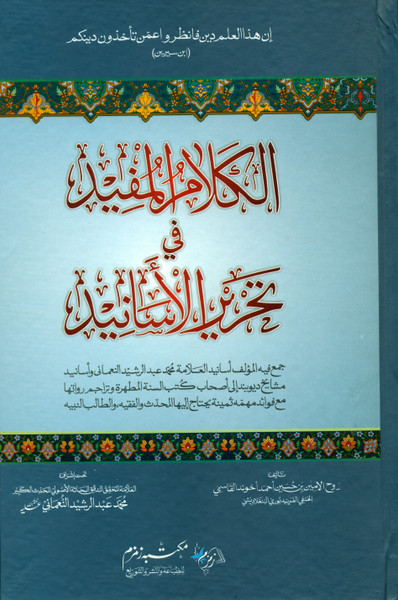 إن هذا العلم دين فانظروا عمن تأخذون دينكم
(ابن سيرين)
الكلام المفيد
في
تحرير الأسانيد
جمع فيه المؤلف أسانيد العلامة محمد عبد الرشيد النعماني وأسانيد
مشايخ ديوبند إلى أصحاب كتب السنة المطهرة وتراجم رواتها
مع فوائد مهمة ثمينة يحتاج إليها المحدث والفقيه، والطالب النبيه
تأليف
روح الأمين بن حسين أحمد أخوند القاسمي
الحنفي الفريدفوري البنغلاديشي
تحت إشراف
العلامة المحقق الناقد
المحدث الكبير
محمد عبد الرشيد النعماني
زمزم
مكتبة زمزم
للطباعة والنشر والتوزيع